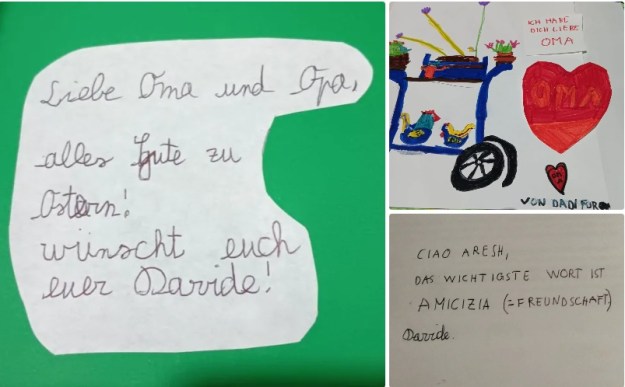 Liebe Oma und Opa,
alles gute zu
Ostern!
wünscht euch
euer Davide!
ICH HABE
DICH LIEBE
OMA
OMA
VON DADI FÜR
CIAO ARESH,
DAS WICHTIGSTE WORT IST
AMICIZIA (=FREUNDSCHAFT)
Davide.